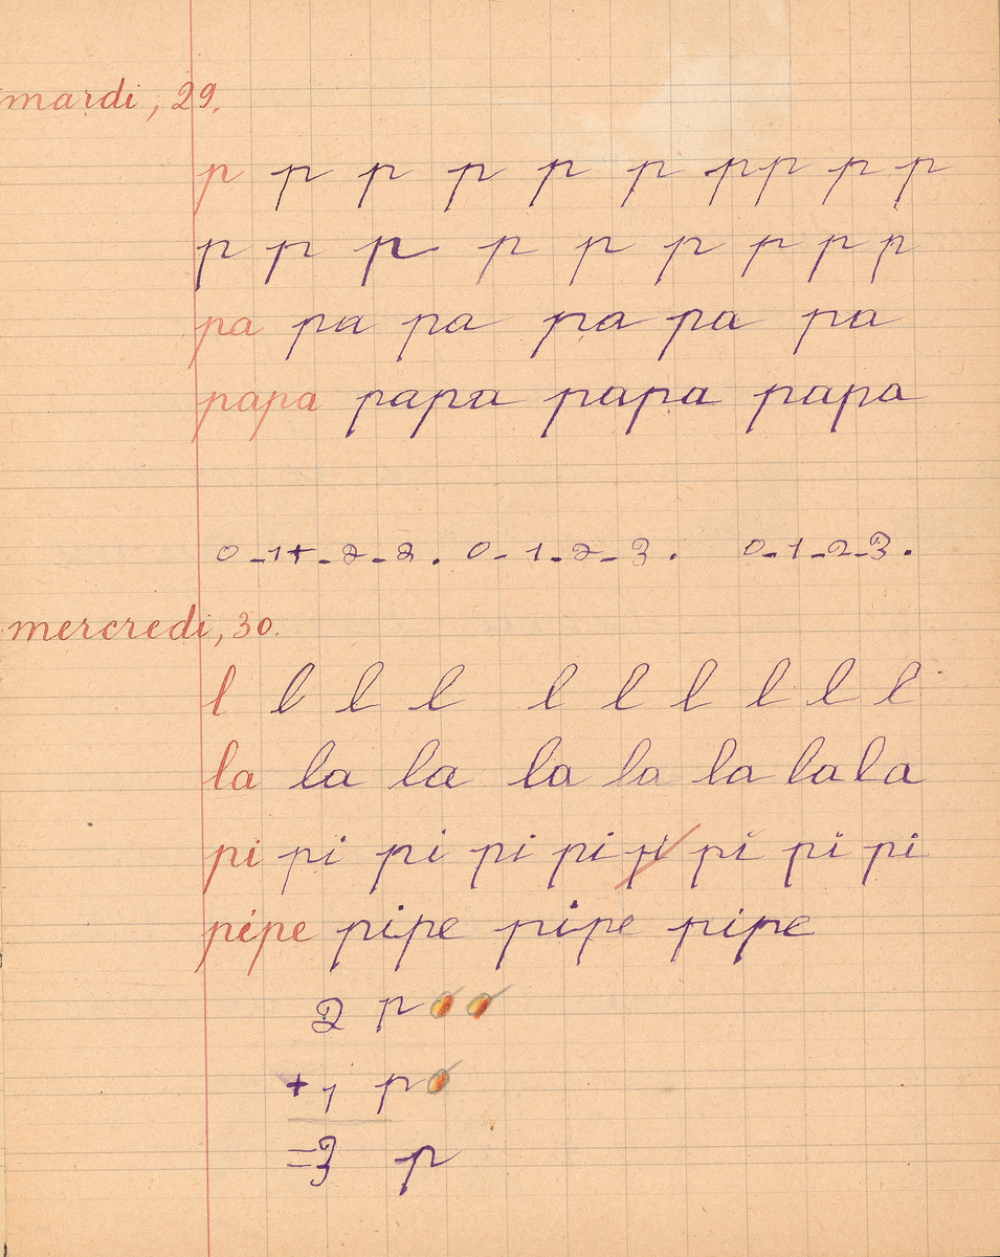 mardi, 29.
p p p p p p p p p p
p p p p p p p p p
pa pa pa pa pa pa
papa papa papa papa
0-1+-2-2. 0-1-2-3. 0-1-2-3.
mercredi, 30.
l l l l l l l l l l
la la la la la la la la
pi pi pi pi pi pi pi pi pi
pipe pipe pipe pipe
2 p
+1 p
=3 p